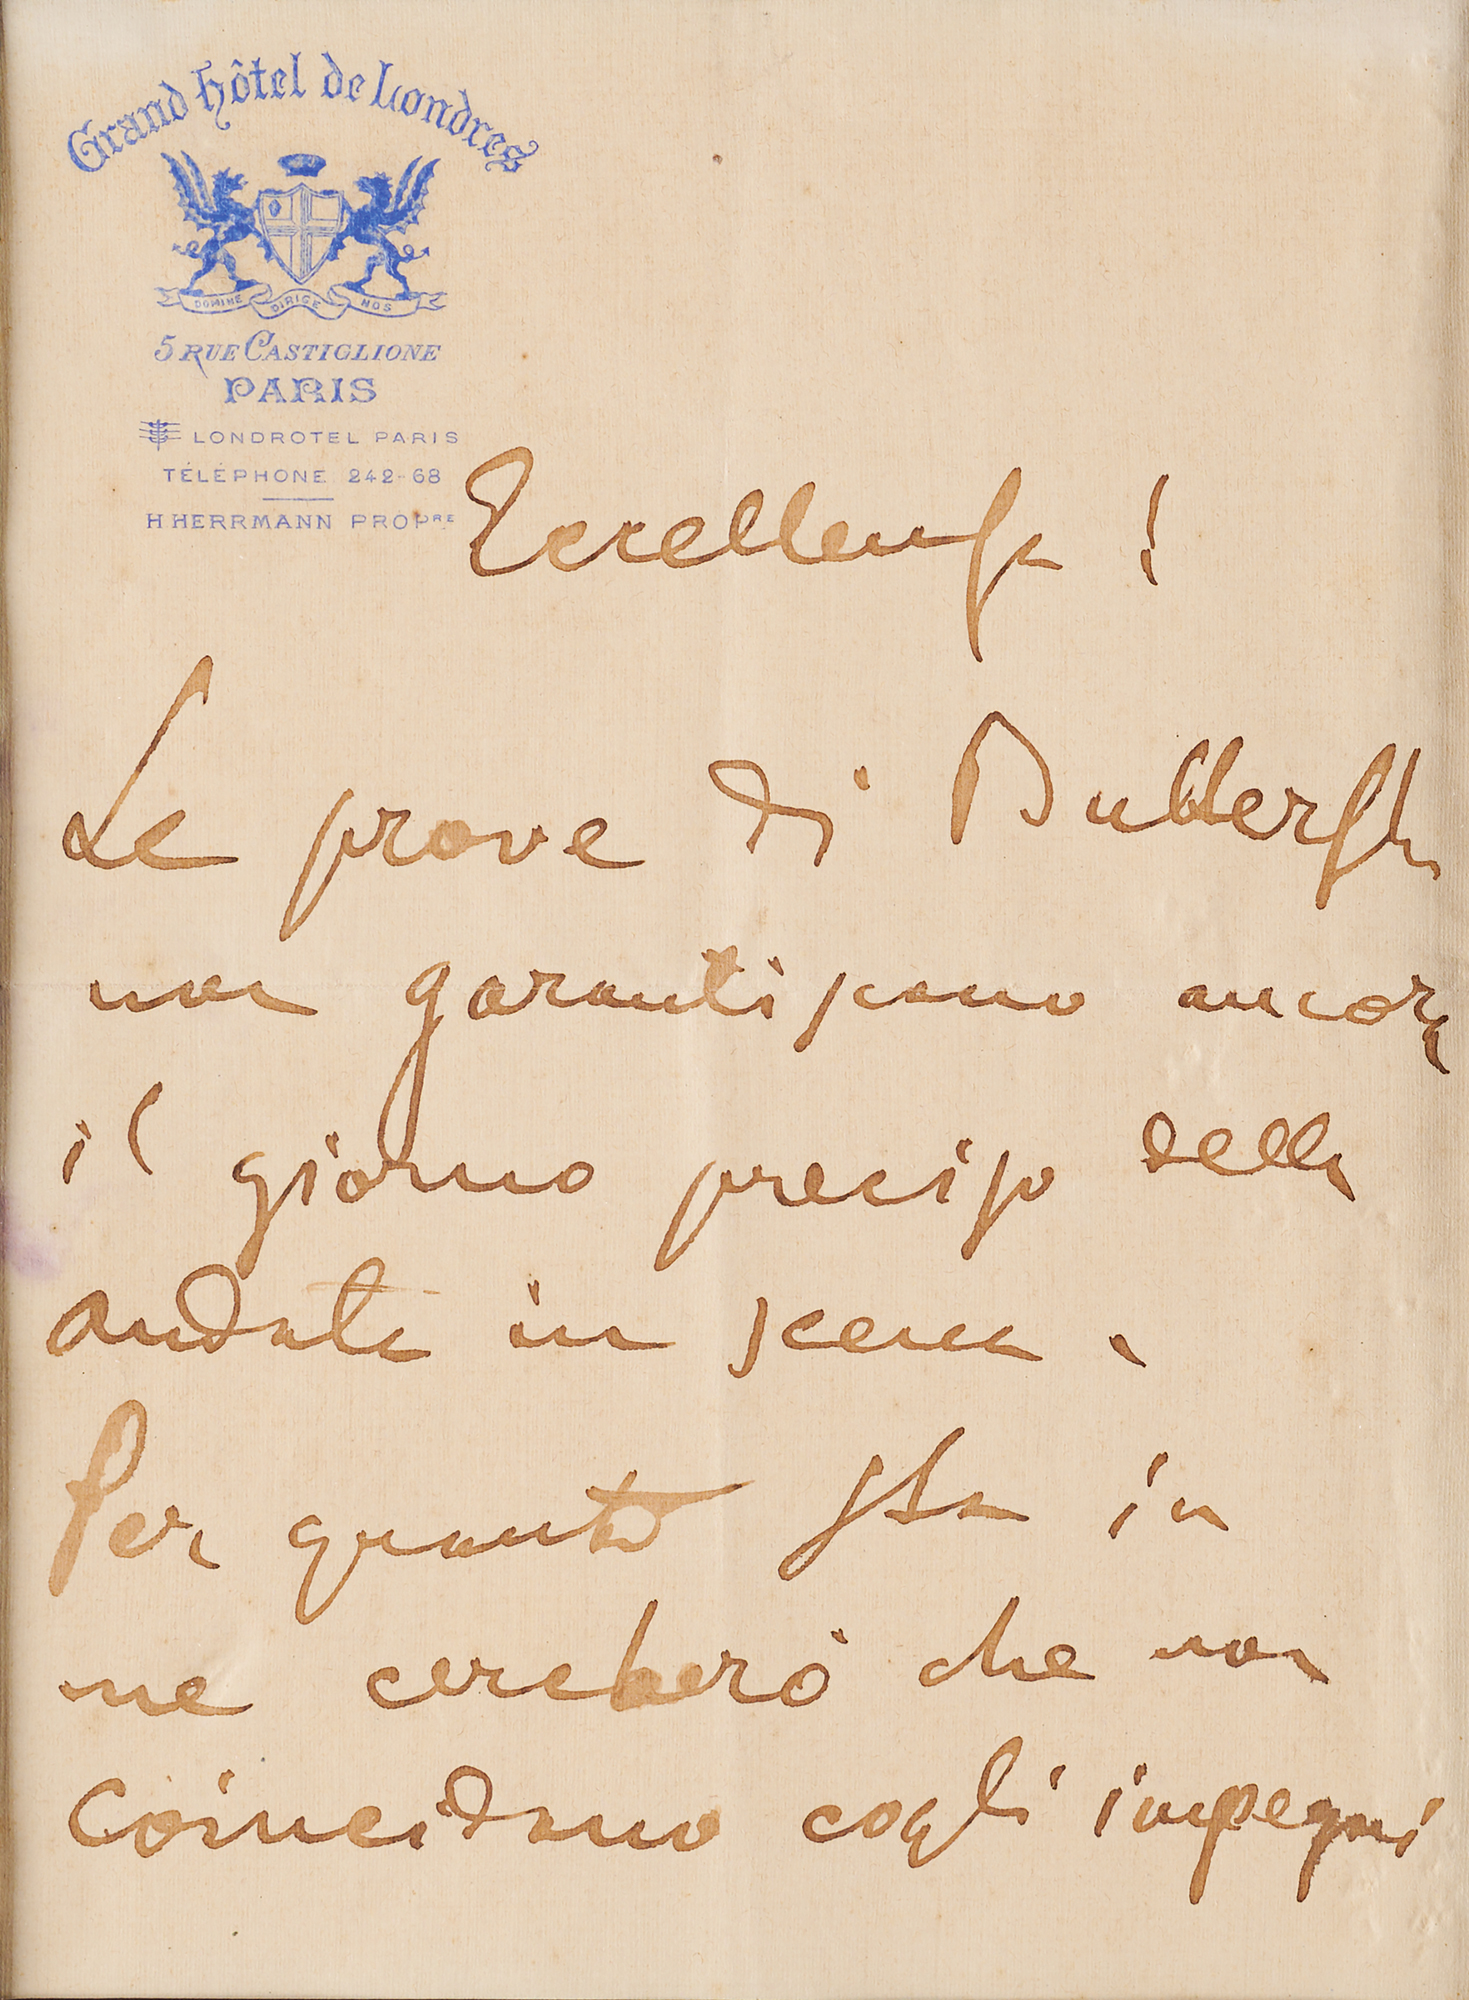 Grand Hôtel de Londres
DOMINE DIRIGE NOS
5 RUE CASTIGLIONE
PARIS
LONDROTEL PARIS
TÉLÉPHONE 242-68
H HERRMANN PROPRE
Eccellenza!
Le prove di Butterfly
non garantiscono ancora
il giorno preciso della
andata in scena.
Per quanto sta in
me cercherò che non
coincidano cogli impegni